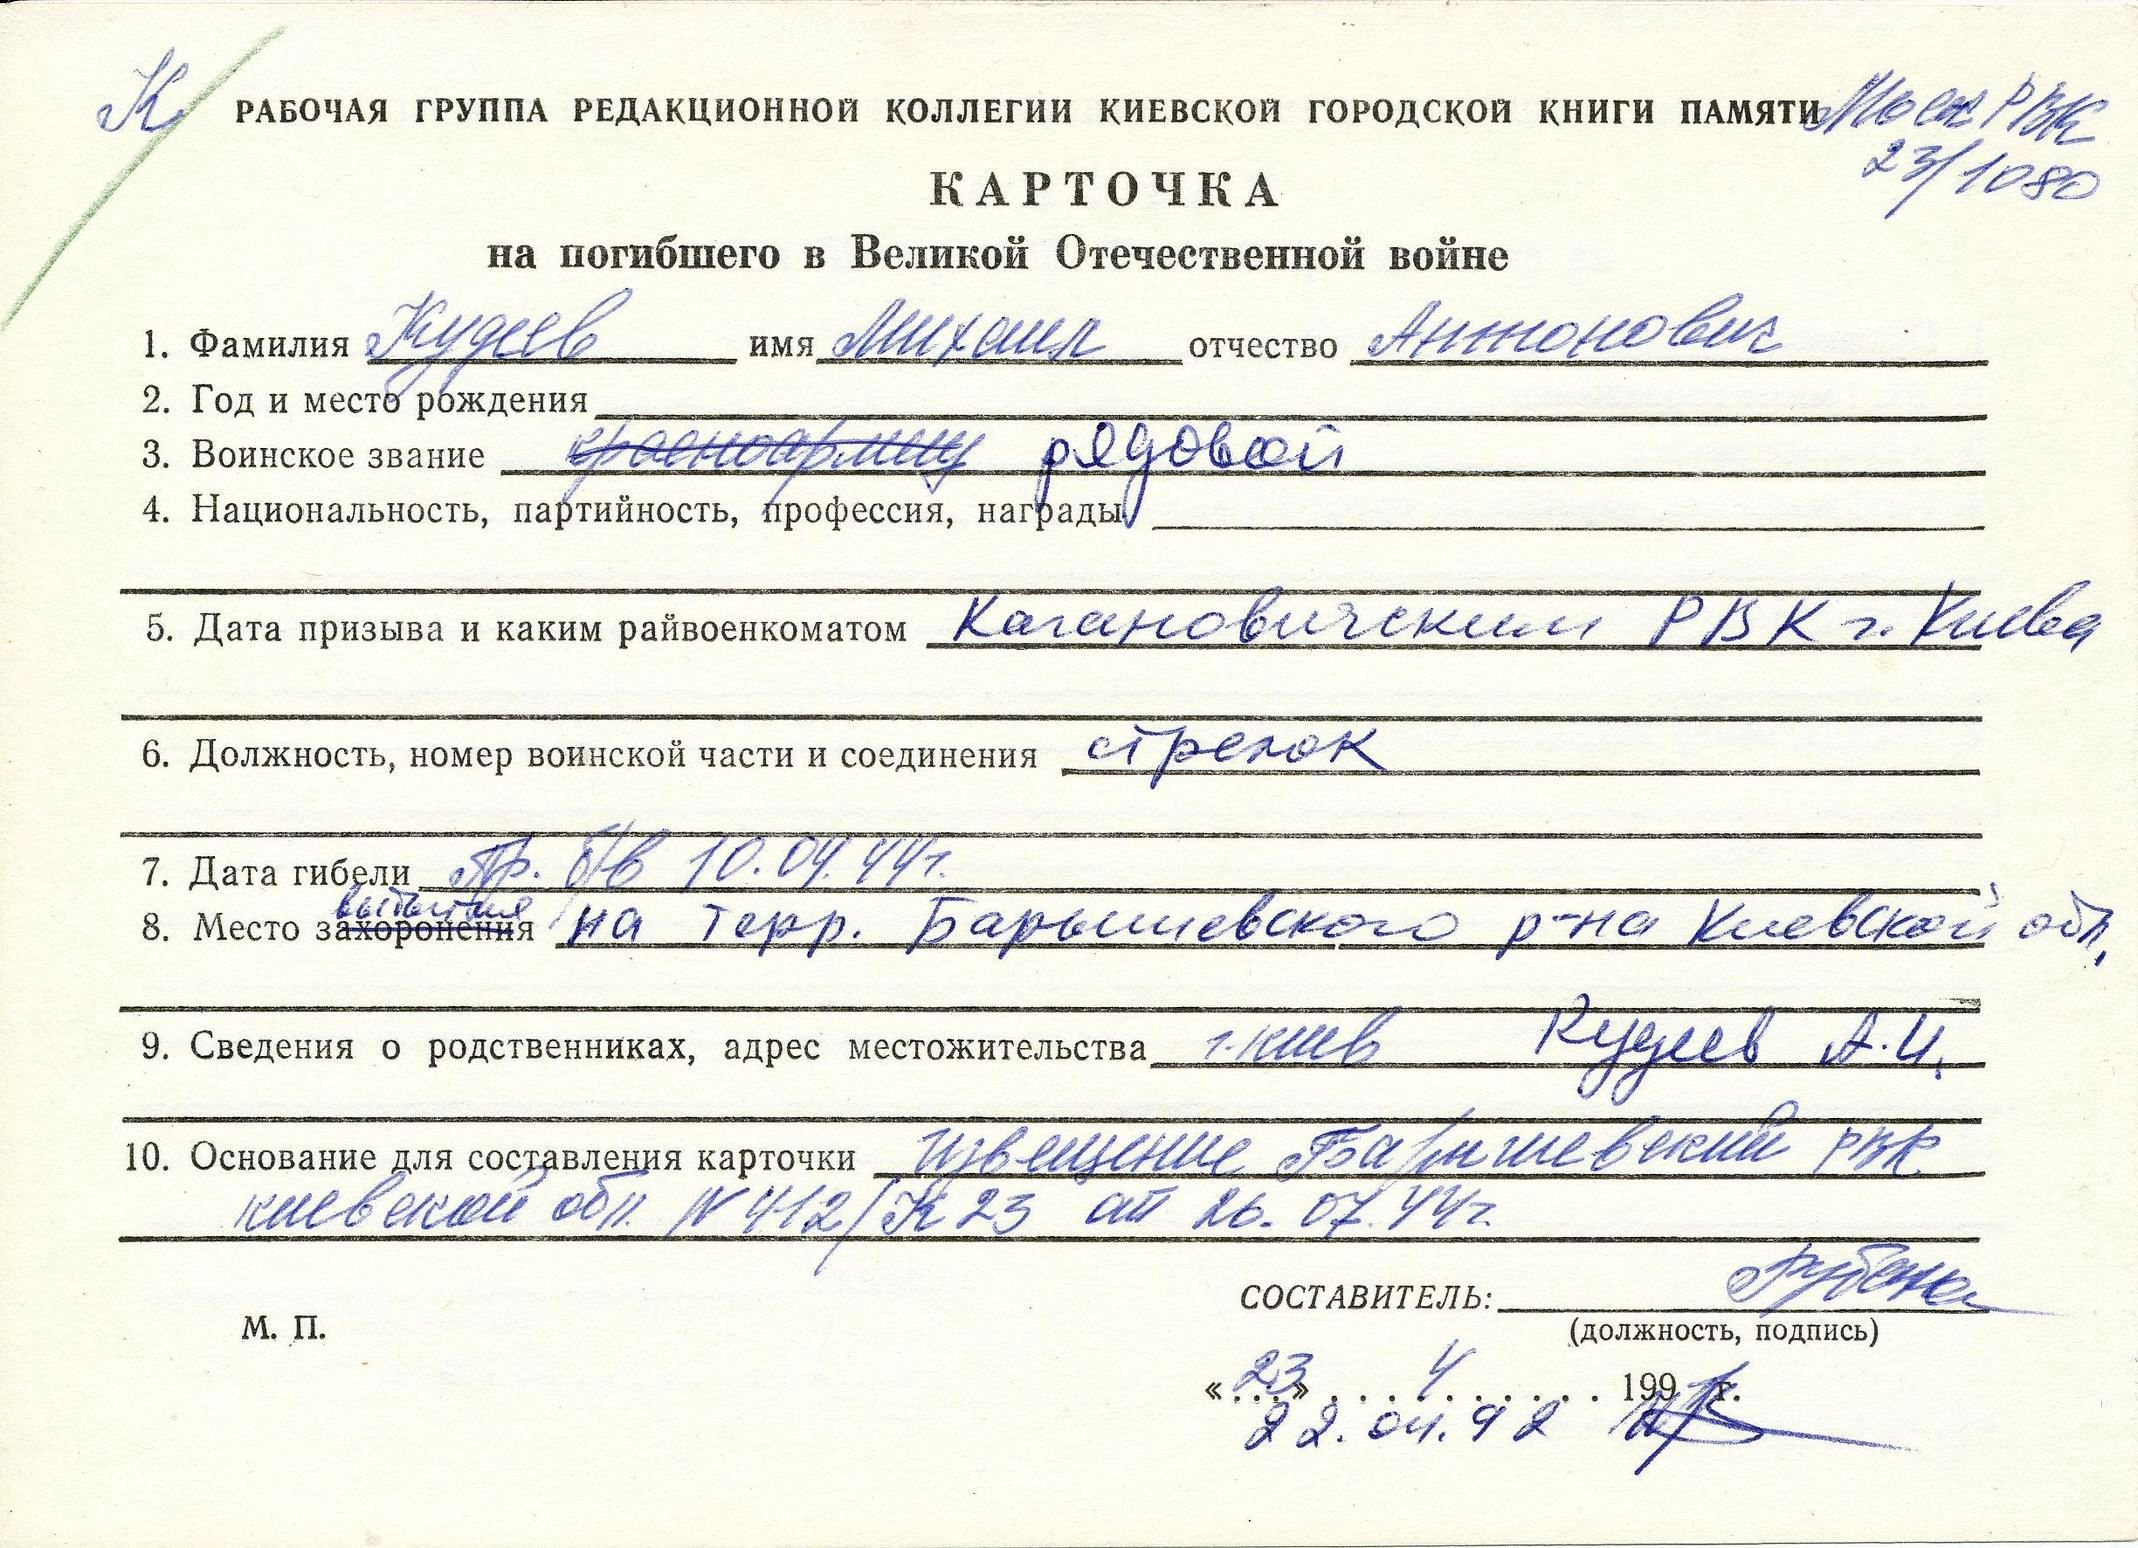 К РАБОЧАЯ ГРУППА РЕДАКЦИОННОЙ КОЛЛЕГИИ КИЕВСКОЙ ГОРОДСКОЙ КНИГИ ПАМЯТИ Моск РВК
23/1080
КАРТОЧКА
на погибшего в Великой Отечественной войне
1. Фамилия Кудеев имя Михаил отчество Антонович
2. Год и место рождения
3. Воинское звание красноармеец рядовой
4. Национальность, партийность, профессия, награды
5. Дата призыва и каким райвоенкоматом Кагановичским РВК г. Киева
6. Должность, номер воинской части и соединения стрелок
7. Дата гибели Пр. б/в 10.04.44г.
выбытия
8. Место захоронения на терр. Барышевского р-на Киевской обл.
9. Сведения о родственниках, адрес местожительства г. Киев Кудеев А.И.
10. Основание для составления карточки извещение Барышевский РВК
киевской обл. N 412/К 23 от 26.07.44г.
СОСТАВИТЕЛЬ:
М. П.
(должность, подпись)
«23» 4 199 г.
22.04.92